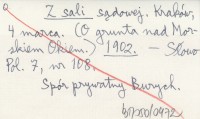 Z sali sądowej. Kraków,
4 marca. (O grunta nad Mor-
skiem Okiem.) 1902. — Słowo
Pol. 7, nr 108.
Spór prywatny Buryych.